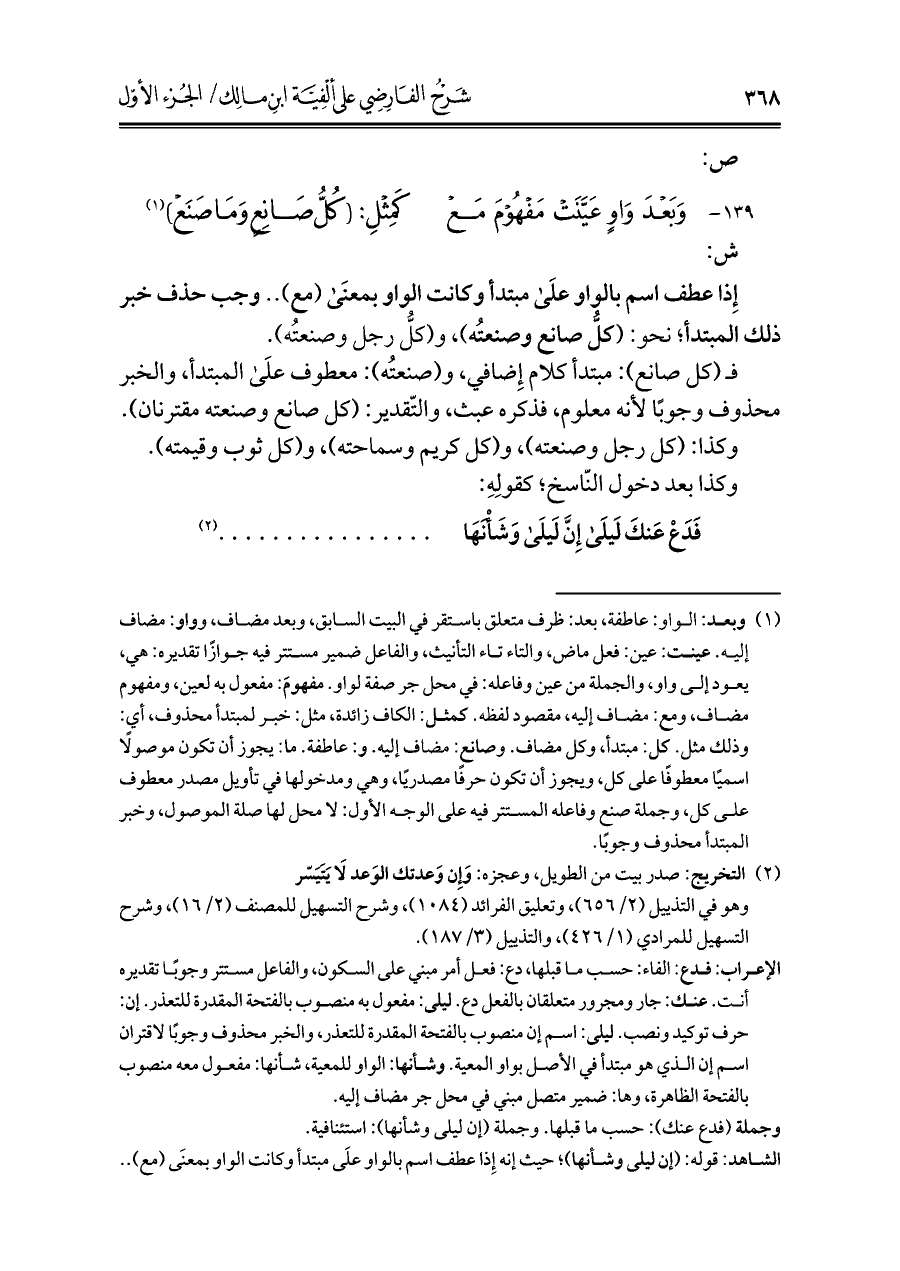 ٣٦٨ شَرْحُ الفَارِضِي على ألْفِيَّة ابنِ مالِك/ الجُزء الأوّل
ص:
١٣٩- وَبَعْدَ وَاوٍ عَيَّنَتْ مَفْهُوْمَ مَعْ كَمِثْلِ: (كُلُّ صَانِعٍ وَمَا صَنَعْ)(١)
ش:
إِذا عطف اسم بالواو علَىٰ مبتدأ وكانت الواو بمعنَىٰ (مع).. وجب حذف خبر
ذلك المبتدأ؛ نحو: (كلُّ صانع وصنعتُه)، و(كلُّ رجل وصنعتُه).
فـ (كل صانع): مبتدأ كلام إِضافي، و(صنعتُه): معطوف علَىٰ المبتدأ، والخبر
محذوف وجوبًا لأنه معلوم، فذكره عبث، والتّقدير: (كل صانع وصنعته مقترنان).
وكذا: (كل رجل وصنعته)، و(كل كريم وسماحته)، و(كل ثوب وقيمته).
وكذا بعد دخول النّاسخ؛ كقولِهِ:
فَدَعْ عَنكَ لَيلَىٰ إِنَّ لَيلَىٰ وَشَأْنَهَا ................(٢)
(١) وبعـد: الـواو: عاطفة، بعد: ظرف متعلق باستقر في البيت السابق، وبعد مضاف، وواو: مضاف
إليه. عينت: عين: فعل ماض، والتاء تاء التأنيث، والفاعل ضمير مستتر فيه جوازًا تقديره: هي،
يعود إلى واو، والجملة من عين وفاعله: في محل جر صفة لواو. مفهومَ: مفعول به لعين، ومفهوم
مضاف، ومع: مضاف إليه، مقصود لفظه. كمثـل: الكاف زائدة، مثل: خبر لمبتدأ محذوف، أي:
وذلك مثل. كل: مبتدأ، وكل مضاف. وصانع: مضاف إليه. و: عاطفة. ما: يجوز أن تكون موصولًا
اسميًا معطوفًا على كل، ويجوز أن تكون حرفًا مصدريًا، وهي ومدخولها في تأويل مصدر معطوف
على كل، وجملة صنع وفاعله المستتر فيه على الوجه الأول: لا محل لها صلة الموصول، وخبر
المبتدأ محذوف وجوبًا.
(٢) التخريج: صدر بيت من الطويل، وعجزه: وَإِن وَعدتك الوَعد لَا يَتَيَسّر
وهو في التذييل (٢/ ٦٥٦)، وتعليق الفرائد (١٠٨٤)، وشرح التسهيل للمصنف (٢/ ١٦)، وشرح
التسهيل للمرادي (١/ ٤٢٦)، والتذييل (٣/ ١٨٧).
الإعـراب: فـدع: الفاء: حسب ما قبلها، دع: فعل أمر مبني على السكون، والفاعل مستتر وجوبًا تقديره
أنت. عنـك: جار ومجرور متعلقان بالفعل دع. ليلى: مفعول به منصوب بالفتحة المقدرة للتعذر. إن:
حرف توكيد ونصب. ليلى: اسم إن منصوب بالفتحة المقدرة للتعذر، والخبر محذوف وجوبًا لاقتران
اسم إن الذي هو مبتدأ في الأصل بواو المعية. وشأنها: الواو للمعية، شأنها: مفعول معه منصوب
بالفتحة الظاهرة، وها: ضمير متصل مبني في محل جر مضاف إليه.
وجملة (فدع عنك): حسب ما قبلها. وجملة (إن ليلى وشأنها): استئنافية.
الشاهد: قوله: (إن ليلى وشأنها)؛ حيث إنه إِذا عطف اسم بالواو علَى مبتدأ وكانت الواو بمعنَى (مع)..